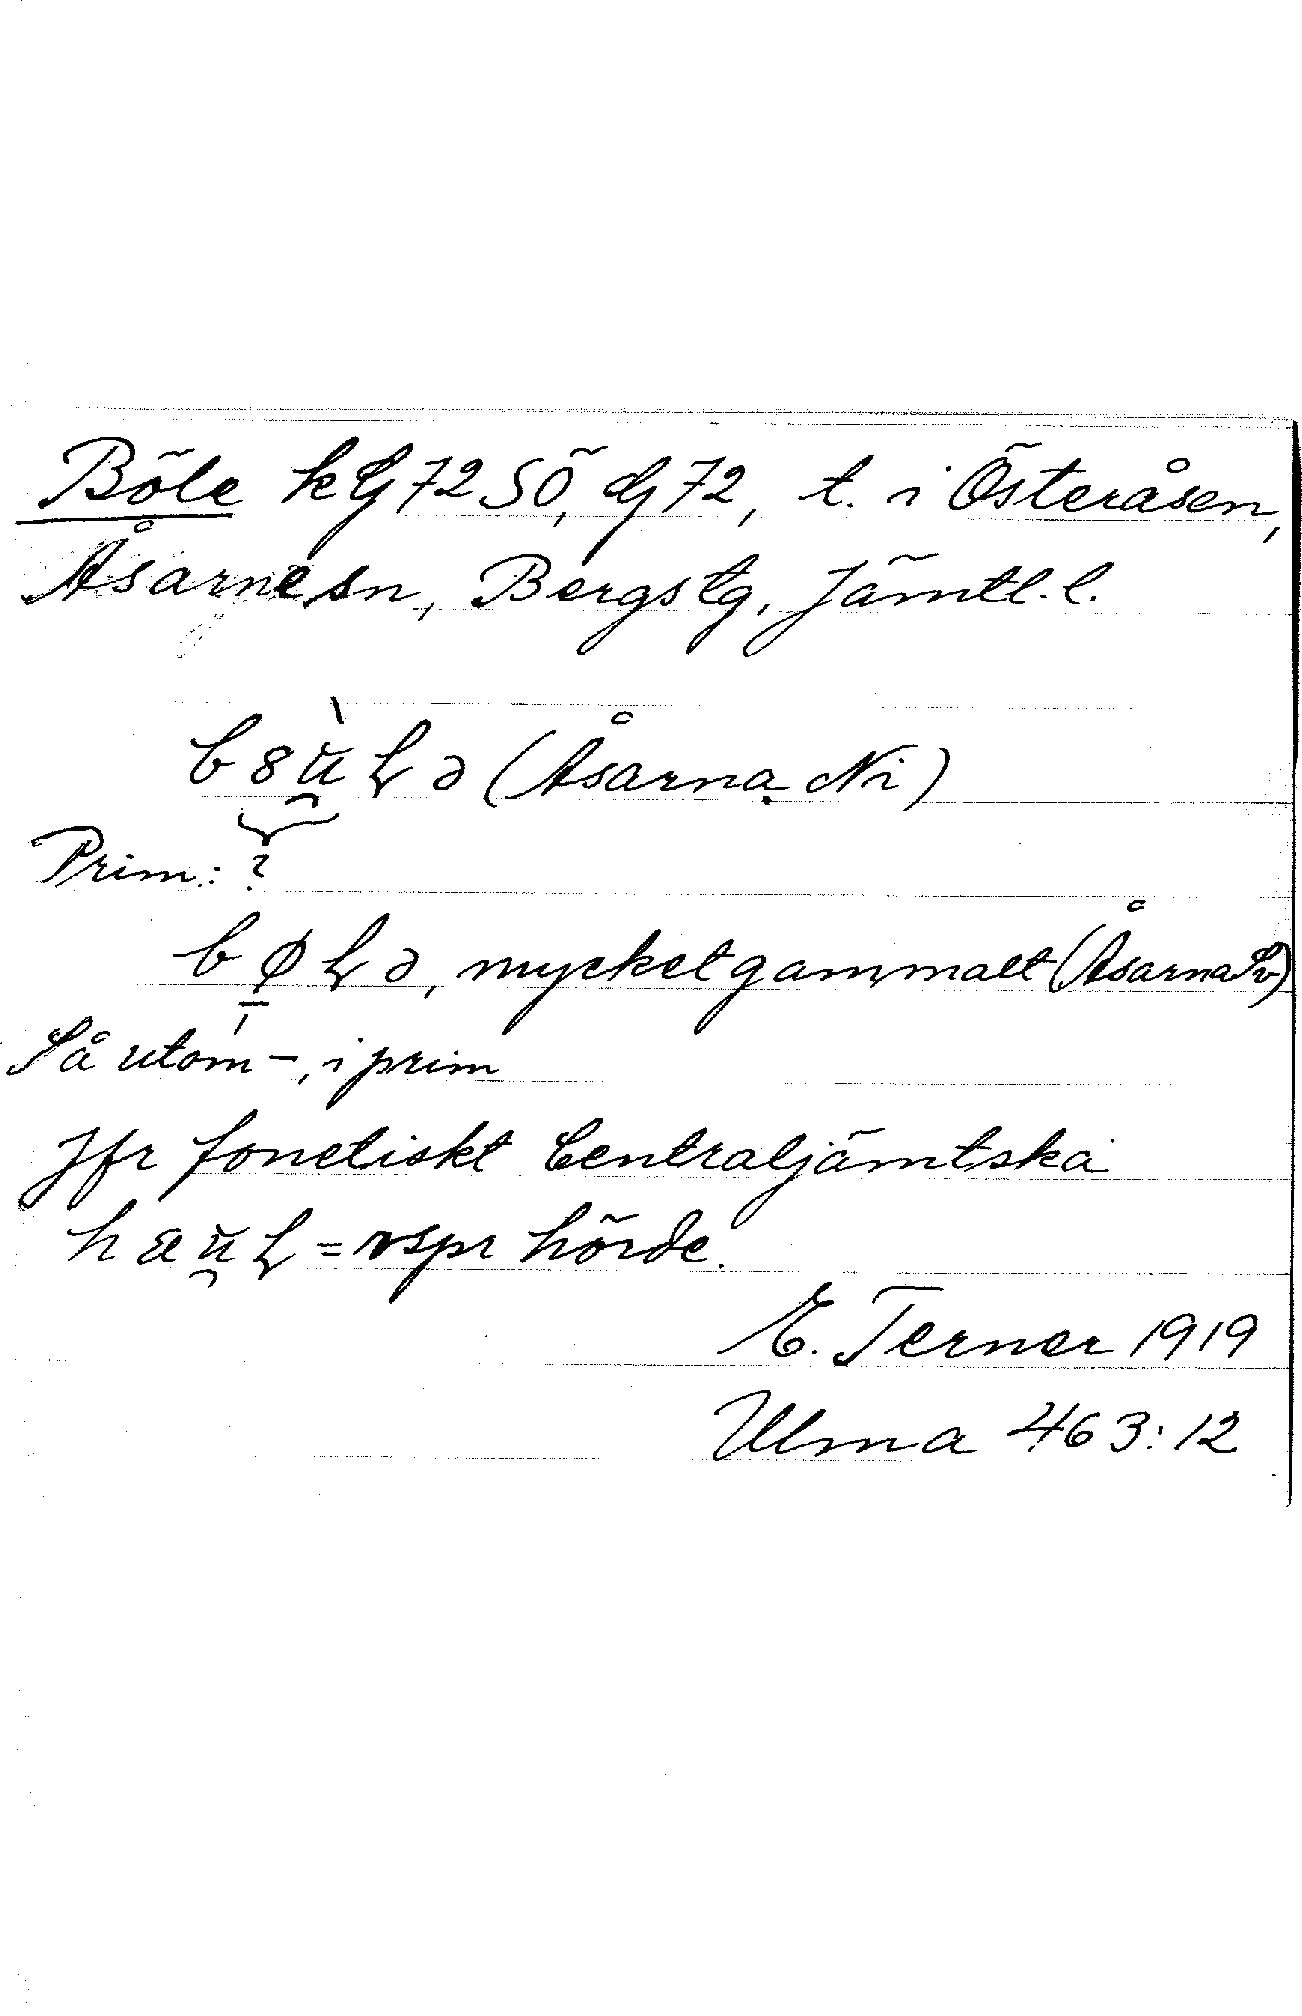 Böle k Lj 72 SÖ, dj 72, t. i Österåsen,
Åsarne sn, Bergs tg, Jämtl. l.
b8ùɭə (Åsarna Ni)
Prim: ?
bø̱ɭə, mycket gammalt (Åsarna Sv)
Så utom –, i prim
Jfr fonetiskt Centraljämtska
hæuɭ = rspr hörde.
E. Terner 1919
Ulma 463:12